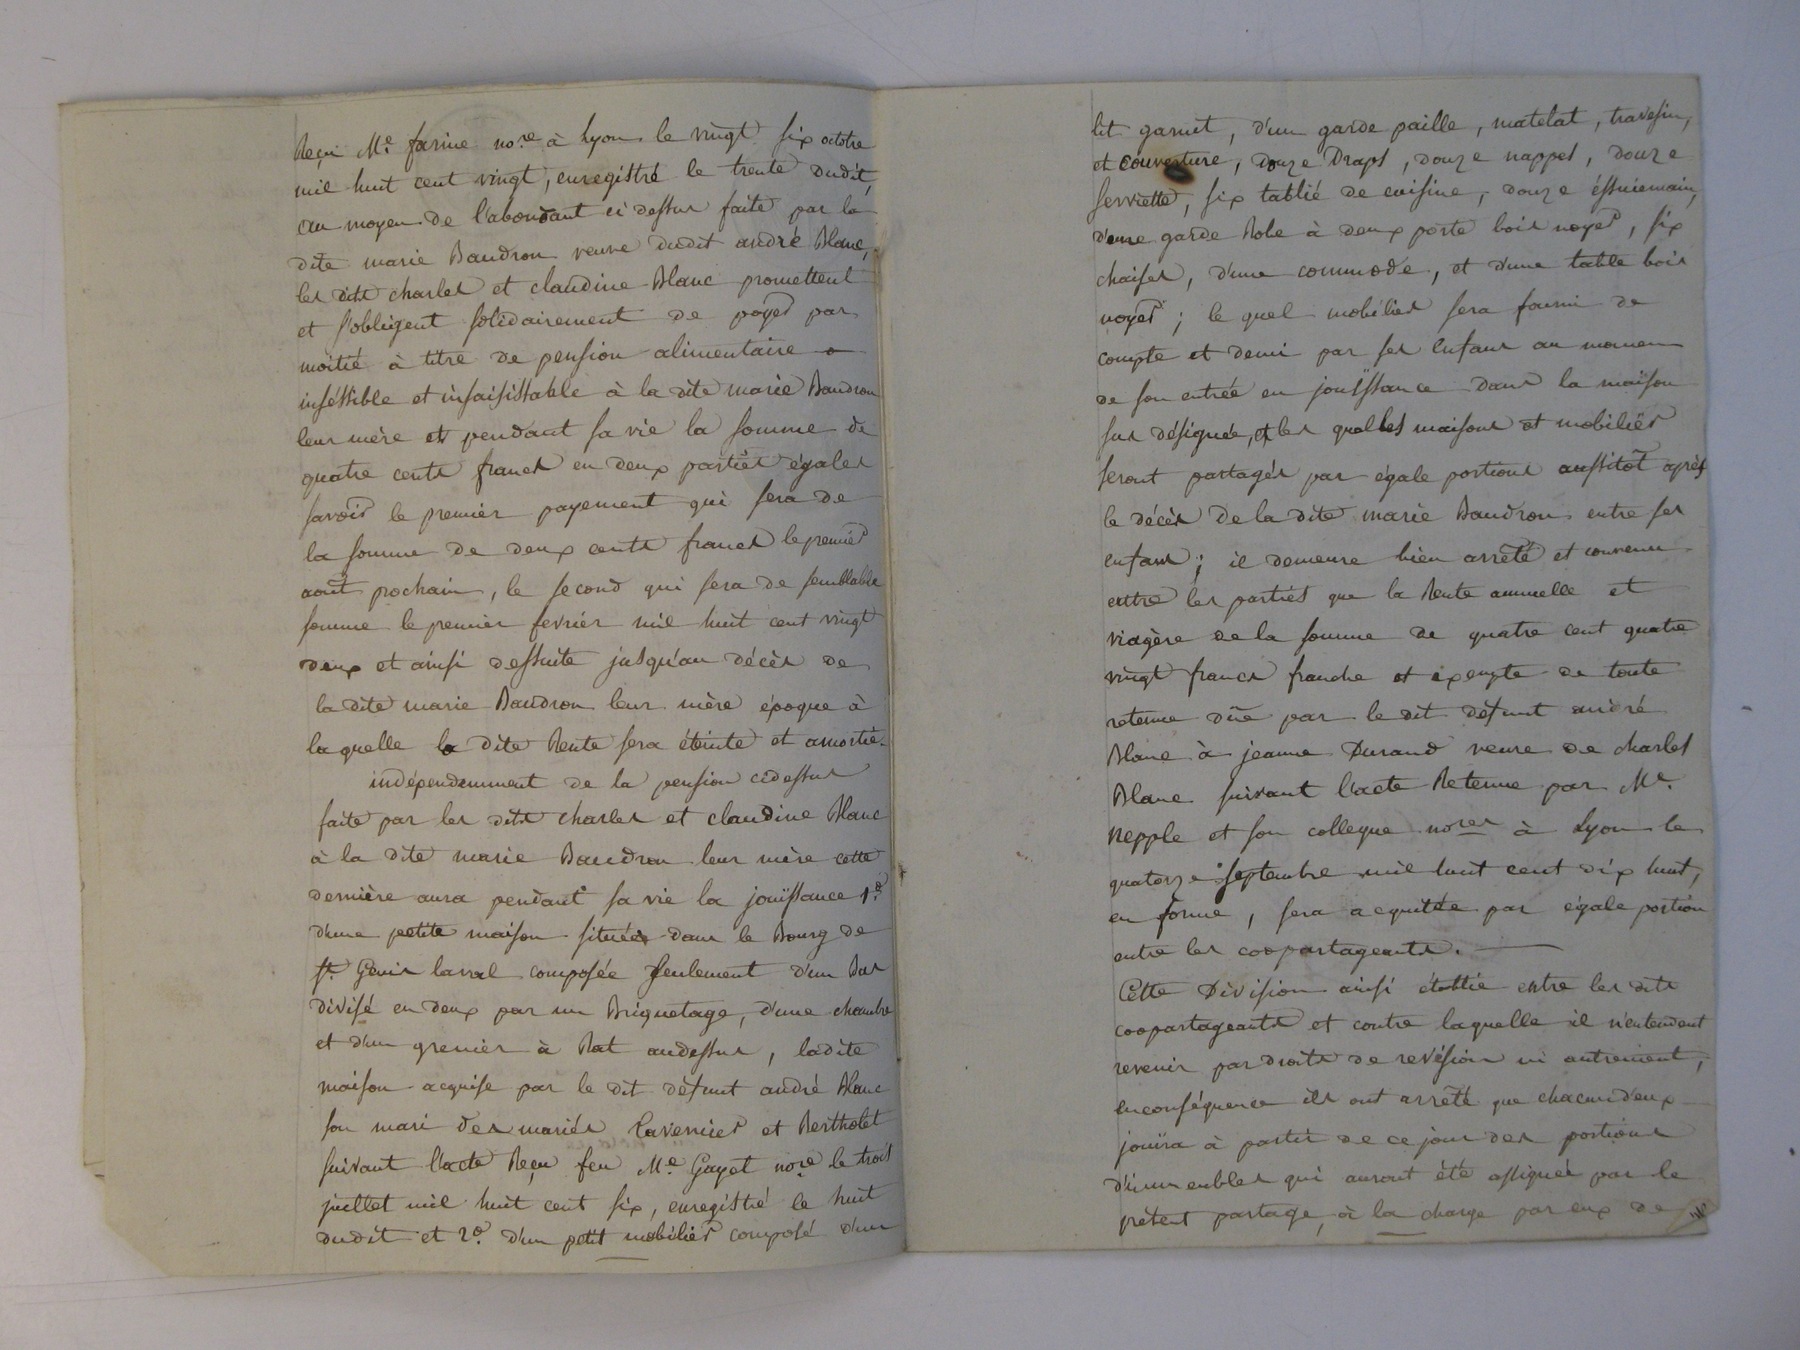 Reçu Me. farine no.re à Lyon le vingt six octobre
mil huit cent vingt, enregistré le trente dudit,
au moyen de l'abondant ci dessus faite par la
dite marie Baudron veuve dudit andré Blanc,
les dits charles et claudine Blanc promettent
et s'obligent solidairement de payer par
moitié à titre de pension alimentaire
inséssible et insaisissable à la dite marie Baudron
leur mère et pendant sa vie la somme de
quatre cents francs en deux partiés égales
savoir le premier payement qui sera de
la somme de deux cents francs le premier
août prochain, le second qui sera de semblable
somme le premier fevrier mil huit cent vingt
deux et ainsi dessuite jusqu'au décès de
la dite marie Baudron leur mère époque à
la quelle la dite Rente sera éteinte et amortie.
indépendamment de la pension cidessus
faite par les dits charles et claudine Blanc
à la dite marie Baudron leur mère cette
dernière aura pendant sa vie la jouissance 1º.
d'une petite maison située dans le Bourg de
st. Genis laval composée seulement d'un Bas
divisé en deux par un Briquetage, d'une chambre
et d'un grenier à Rat audessus, ladite
maison acquise par le dit défunt andré Blanc
son mari des mariés Lavernier et Bertholet
suivant l'acte Reçu feu Me. Gayet no.re le trois
juillet mil huit cent six, enregistré le huit
dudit et 2º. d'un petit mobilier composé d'un
lit garnit, d'un garde paille, matelat, travesin,
et couverture, douze Draps, douze nappes, douze
serviette, six tablié de cuisine, douze éssuiemain,
d'une garde Robe à deux porte bois noyer, six
chaises, d'une commode, et d'une table bois
noyer; le quel mobilier sera fourni de
compte et demi par ses enfans au momen
de son entrée en jouissance dans la maison
sus désignée, et les quelles maisons et mobilier
seront partagés par égale portions aussitôt après
le décès de la dite marie Baudron entre ses
enfans; il demeure bien arrêté et convenu
entre les partiés que la Rente annuelle et
viagère de la somme de quatre cent quatre
vingt francs franche et exempte de toute
retenue dûe par le dit défunt andré
Blanc à jeanne Durand veuve de charles
Blanc suivant l'acte Retenue par Me.
Nepple et son collegue no.res à Lyon le
quatorze septembre mil huit cent dix huit,
en forme, sera acquitée par égale portion
entre les coopartageants.
Cette Division ainsi établie entre les dits
coopartageants et contre laquelle il n'entendent
revenir par droits de revésion ni autrement,
enconséquence ils ont arrêté que chacun d'eux
jouira à partir de ce jour des portions
d'immeubles qui auront été assignée par le
présent partage, à la charge par eux de